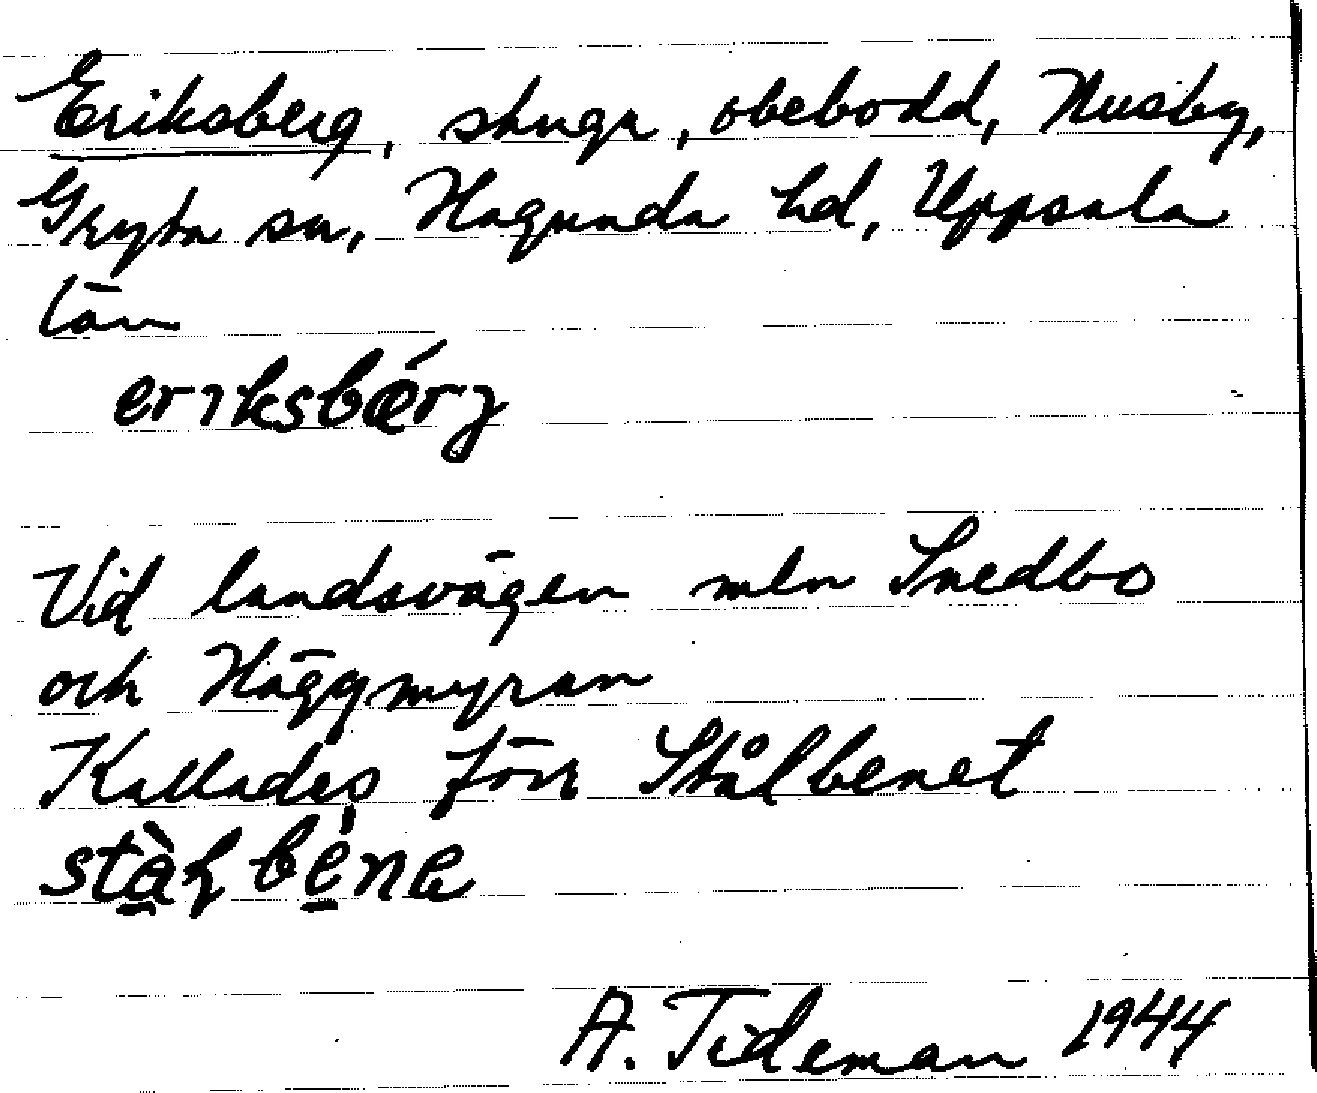 Eriksberg, stuga, obebodd, Nusby,
Gryta sn, Hagunda hd, Uppsala
län
eriksbærj
Vid landsvägen mln Snedbo
och Häggmyran
Kallades förr Stålbenet
A. Tideman 1944